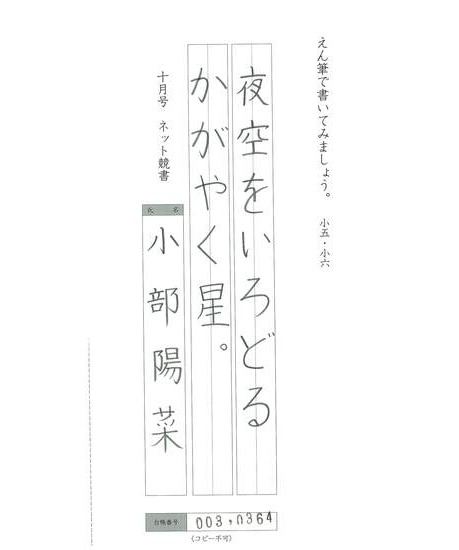 えん筆で書いてみましょう。 小五・小六
夜空をいろどる
かがやく星。
十月号 ネット競書
氏名
小部陽菜
台帳番号 003,0364
(コピー不可)